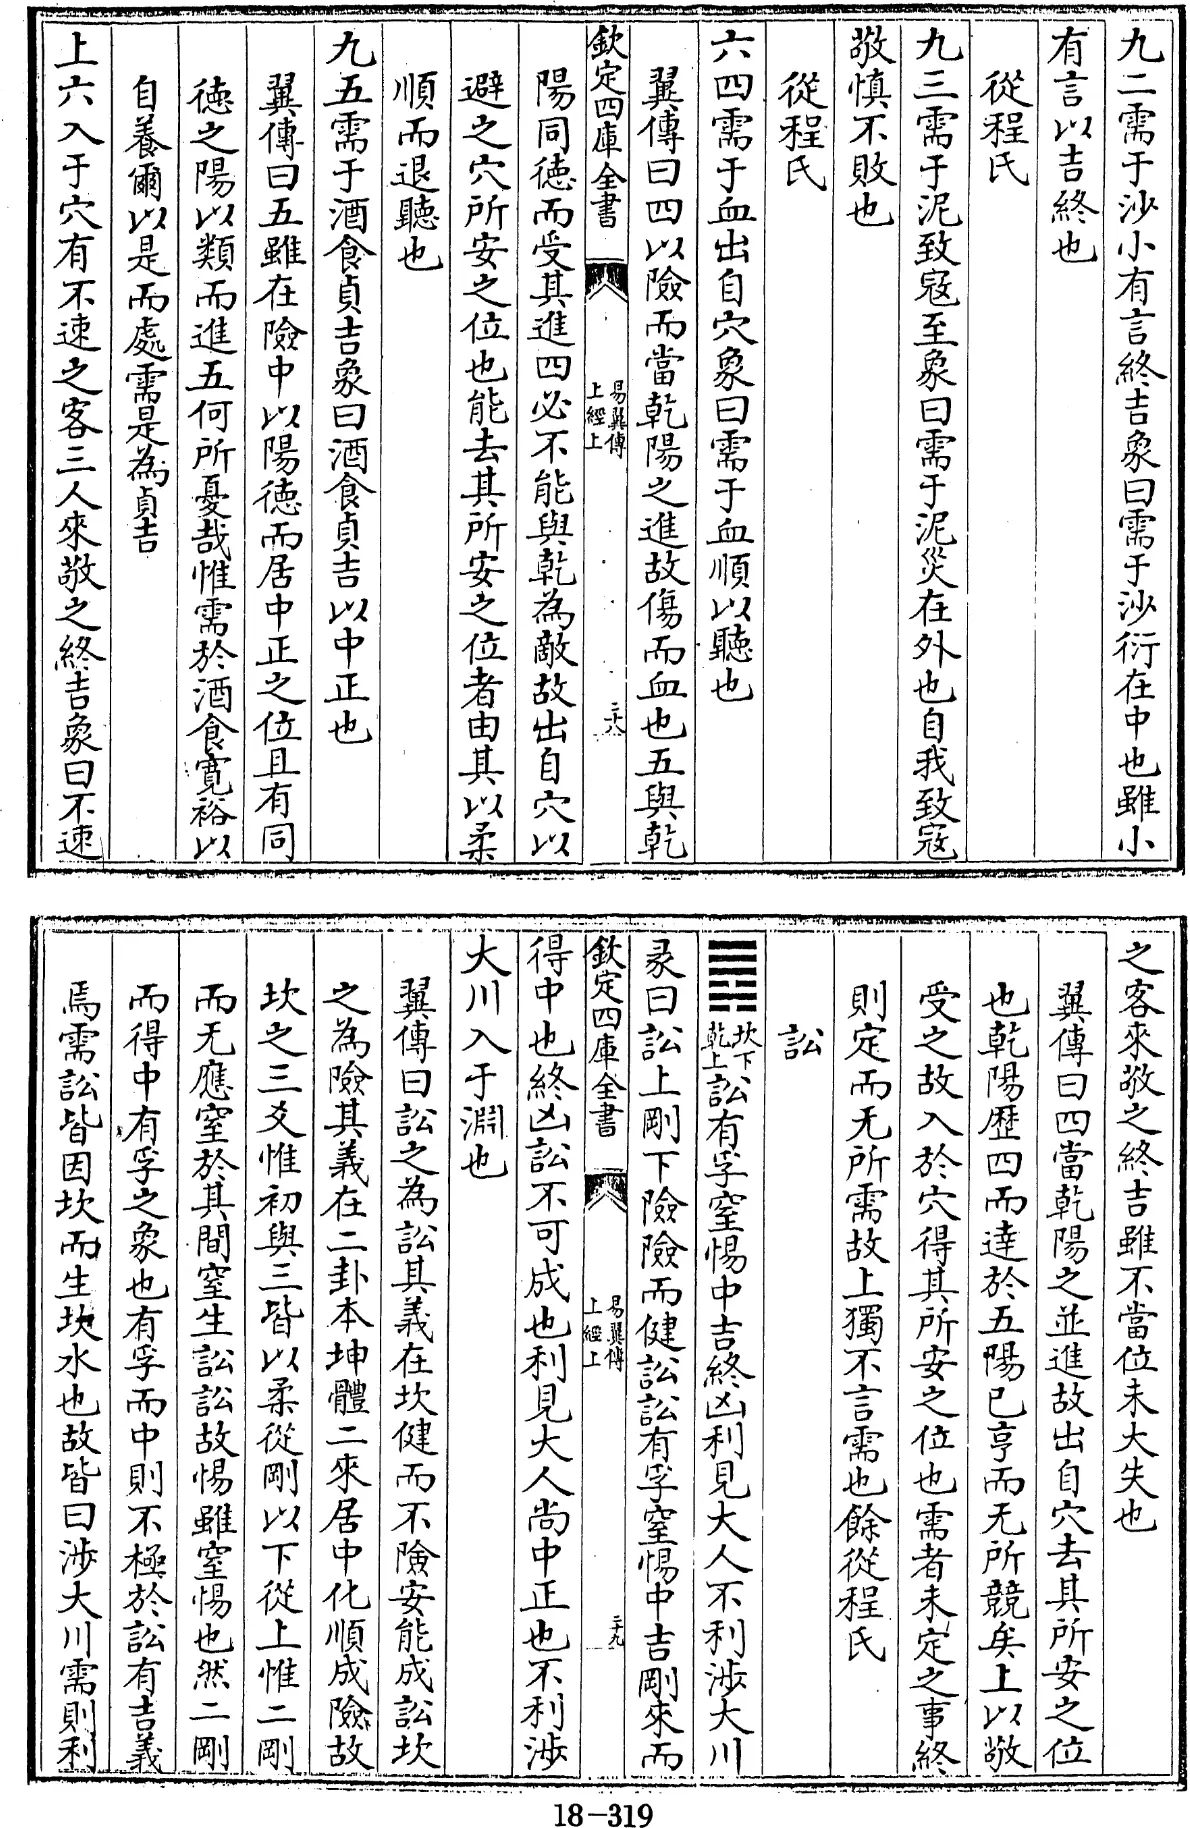 九二需于沙小有言終吉象曰需于沙衍在中也雖小
有言以吉終也
從程氏
九三需于泥致寇至象曰需于泥災在外也自我致寇
敬慎不敗也
從程氏
六四需于血出自穴象曰需于血順以聽也
翼傳曰四以險而當乾陽之進故傷而血也五與乾
欽定四庫全書
易翼傳
上經上
二十八
陽同徳而受其進四必不能與乾為敵故出自穴以
避之穴所安之位也能去其所安之位者由其以柔
順而退聽也
九五需于酒食貞吉象曰酒食貞吉以中正也
翼傳曰五雖在險中以陽徳而居中正之位且有同
徳之陽以類而進五何所憂哉惟需於酒食寛裕以
自養爾以是而處需是為貞吉
上六入于穴有不速之客三人來敬之終吉象曰不速
之客來敬之終吉雖不當位未大失也
翼傳曰四當乾陽之並進故出自穴去其所安之位
也乾陽歴四而達於五陽已亨而无所競矣上以敬
受之故入於穴得其所安之位也需者未定之事終
則定而无所需故上獨不言需也餘從程氏
訟
䷅坎下
乾上訟有孚窒惕中吉終凶利見大人不利渉大川
彖曰訟上剛下險險而健訟訟有孚窒惕中吉剛來而
欽定四庫全書
易翼傳
上經上
二十九
得中也終凶訟不可成也利見大人尚中正也不利渉
大川入于淵也
翼傳曰訟之為訟其義在坎健而不險安能成訟坎
之為險其義在二卦本坤體二來居中化順成險故
坎之三爻惟初與三皆以柔從剛以下從上惟二剛
而无應窒於其間窒生訟訟故惕雖窒惕也然二剛
而得中有孚之象也有孚而中則不極於訟有吉義
焉需訟皆因坎而生坎水也故皆曰渉大川需則利
18-319